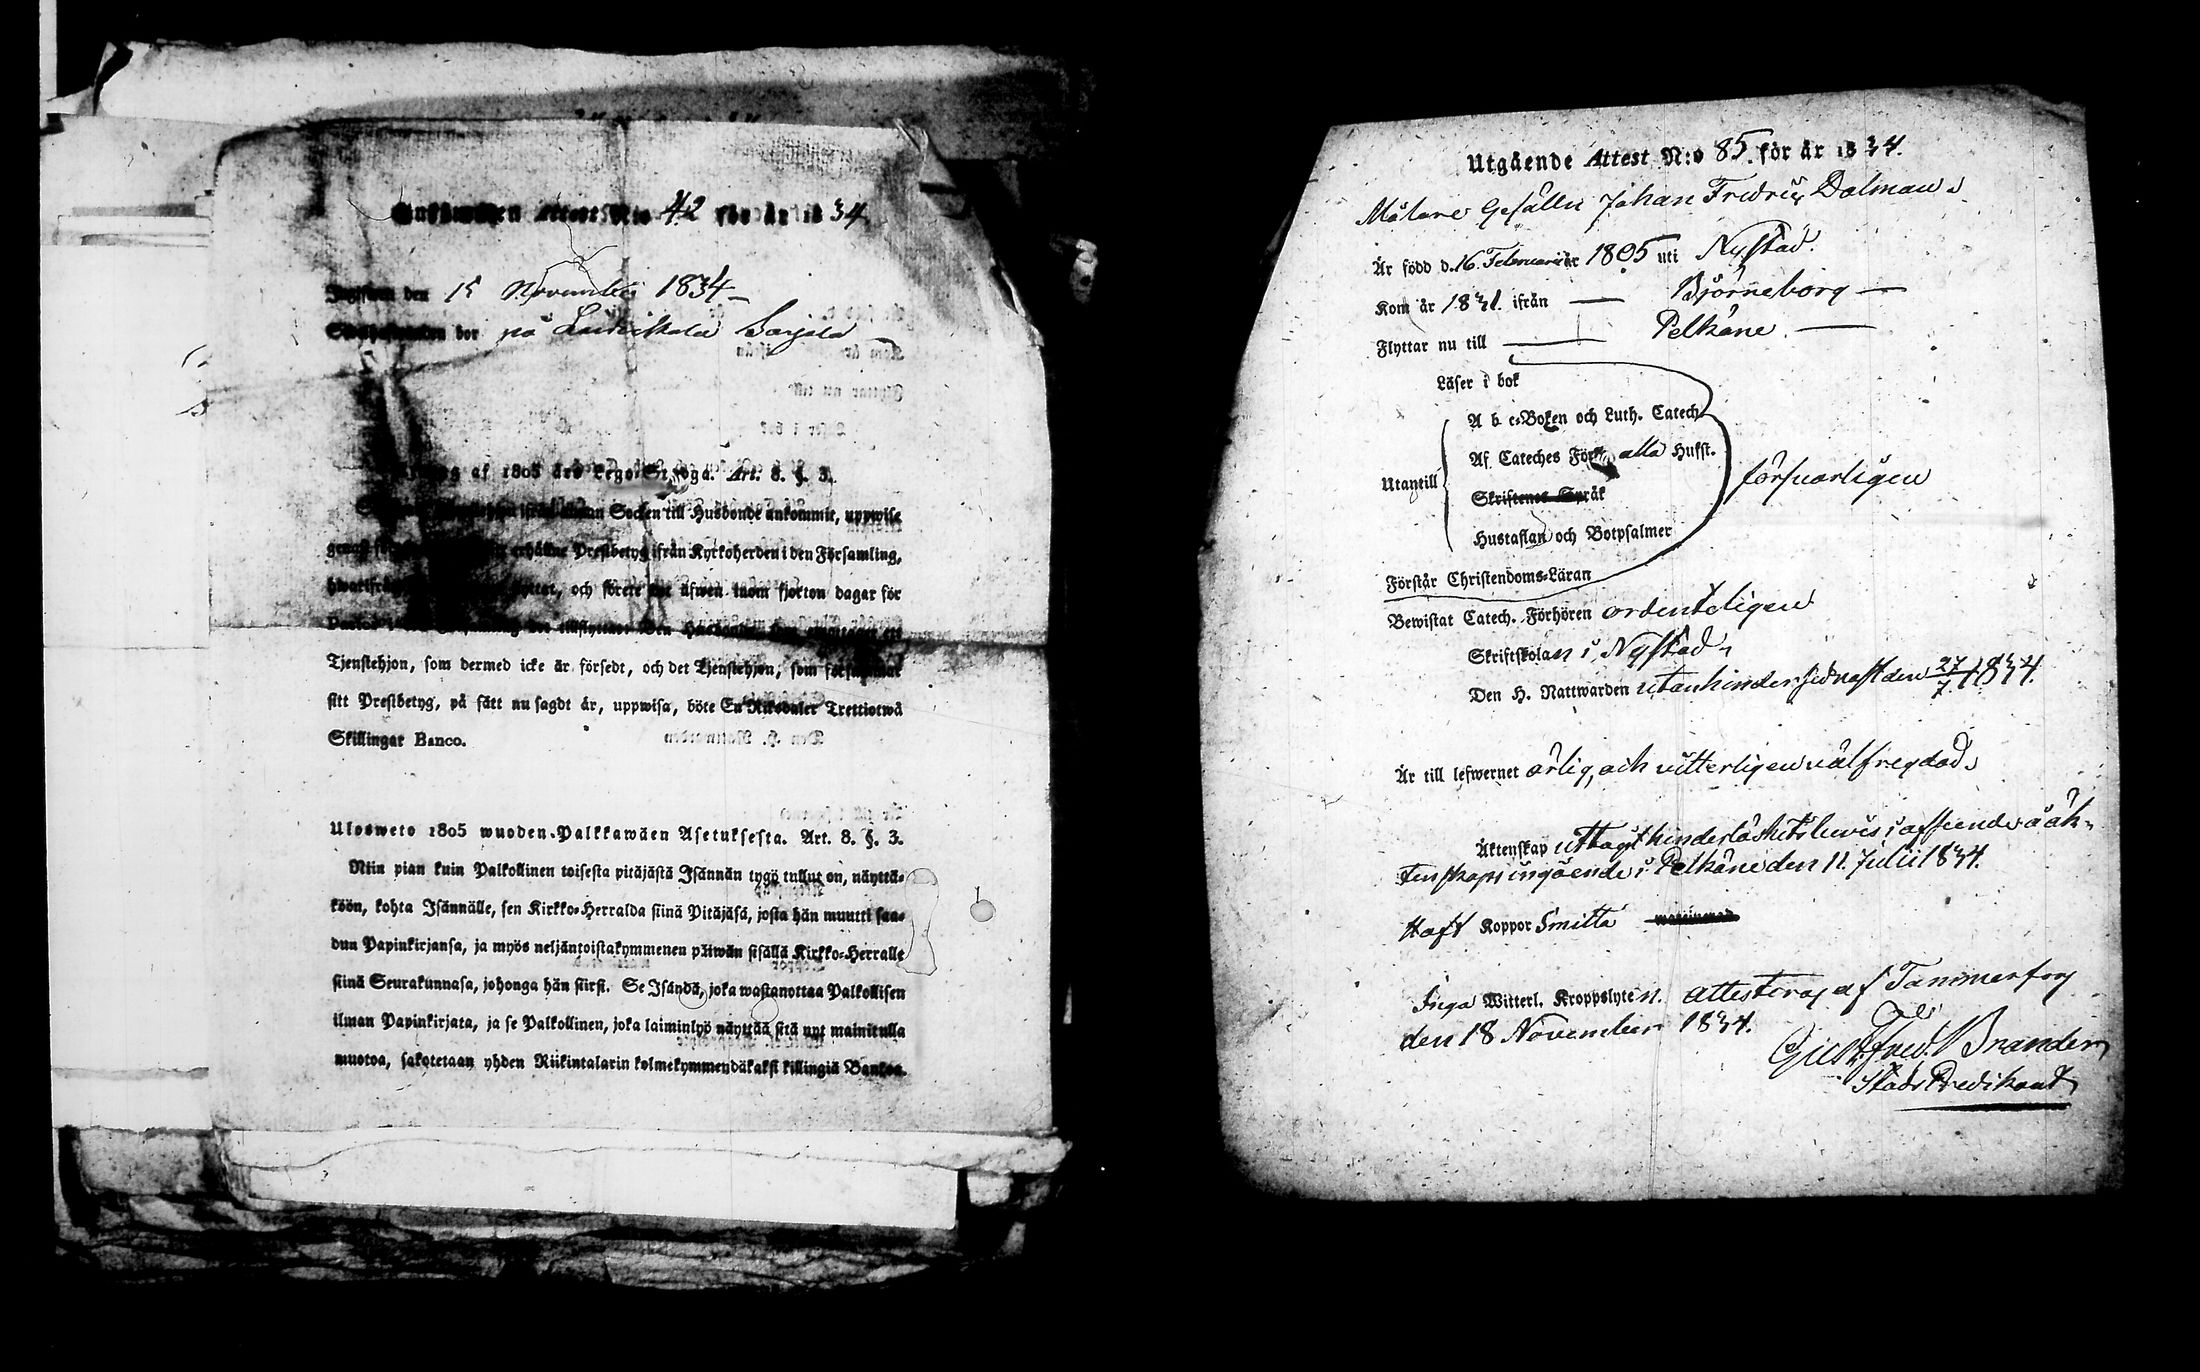 Attest N:o 42 för år 1834
den 15 November 1834
bor på Sarjala
af 1805 års Lego-Stadga. Art. 8. §. 3.
Socken till Husbonde ankommit, uppwise
erhållne Prestbetyg ifrån Kyrkoherden i den Församling,
och förete det äfwen inom fjorton dagar för
Tjenstehjon, som dermed icke är försedt, och det Tjenstehjon, som försummar
sitt Prestbetyg, på sätt nu sagdt är, uppwisa, böte En Riksdaler Trettiotwå
Skillingar Banco.
Ulosweto 1805 wuoden Palkkawäen Asetuksesta. Art. 8. §. 3.
Niin pian kuin Palkollinen toisesta pitäjästä Isännän tygö tullut on, näyttä-
köön, kohta Isännälle, sen Kirkko-Herralda siinä Pitäjäsä, josta hän muutti saa-
dun Papinkirjansa, ja myös neljäntoistakymmenen päiwän sisällä Kirkko-Herralle
siinä Seurakunnasa, johonga hän siirsi. Se Isändä, joka wastanottaa Palkollisen
ilman Papinkirjata, ja se Palkollinen, joka laiminlyö näyttää sitä nyt mainitulla
muotoa, sakotetaan yhden Riikintalarin kolmekymmendäkaksi killingiä Bankoa.
Utgående Attest N:o 85. för år 1834.
Målare Gesällen Johan Fredric Dalman
Är född d. 16 Februarii år 1805 uti Nystad
Kom år 1831. ifrån — Björneborg —
Flyttar nu till — Pelkäne. —
Läser i bok
A b c-Boken och Luth. Catech.
Af Cateches Förkl. alla Hufst.
Utantill försvarligen
Skriftenes Språk
Hustaflan och Botpsalmer
Förstår Christendoms-Läran
Bewistat Catech. Förhören ordenteligen
Skriftskolan i Nystad
Den H. Nattwarden utan hinder sednast den 27/7 1834.
Är till lefwernet ärlig, och vitterligen välfregdad.
Äktenskap uttagit hinderlöshets bevis i afseende å äk-
tenskaps ingående i Pelkäne den 11. Julii 1834.
Haft Koppor Smitta
Inga Witterl. Kroppslyten. attesteras af Tammerfors
den 18 November 1834.
Gust. Fred. Brander
Stads Predikant